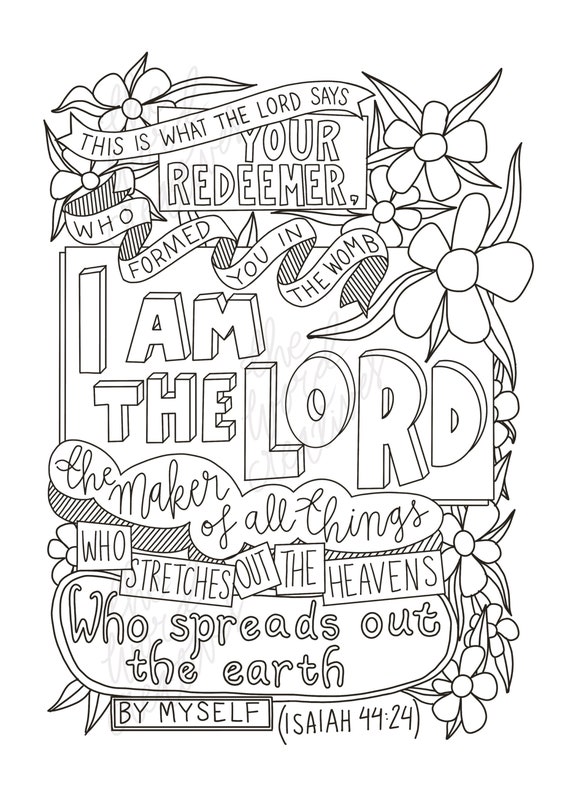 THIS IS WHAT THE LORD SAYS
YOUR
REDEEMER,
WHO
FORMED
YOU IN
THE WOMB
I AM
THE LORD
the maker
of all things
WHO
STRETCHES OUT THE HEAVENS
Who spreads out
the earth
BY MYSELF (ISAIAH 44:24)
the
word
creatives